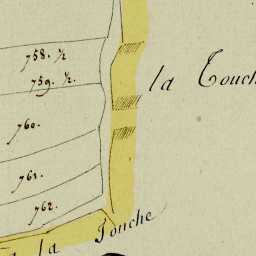 758. ½
759. ½.
la Touch
760.
761.
762.
la Touche